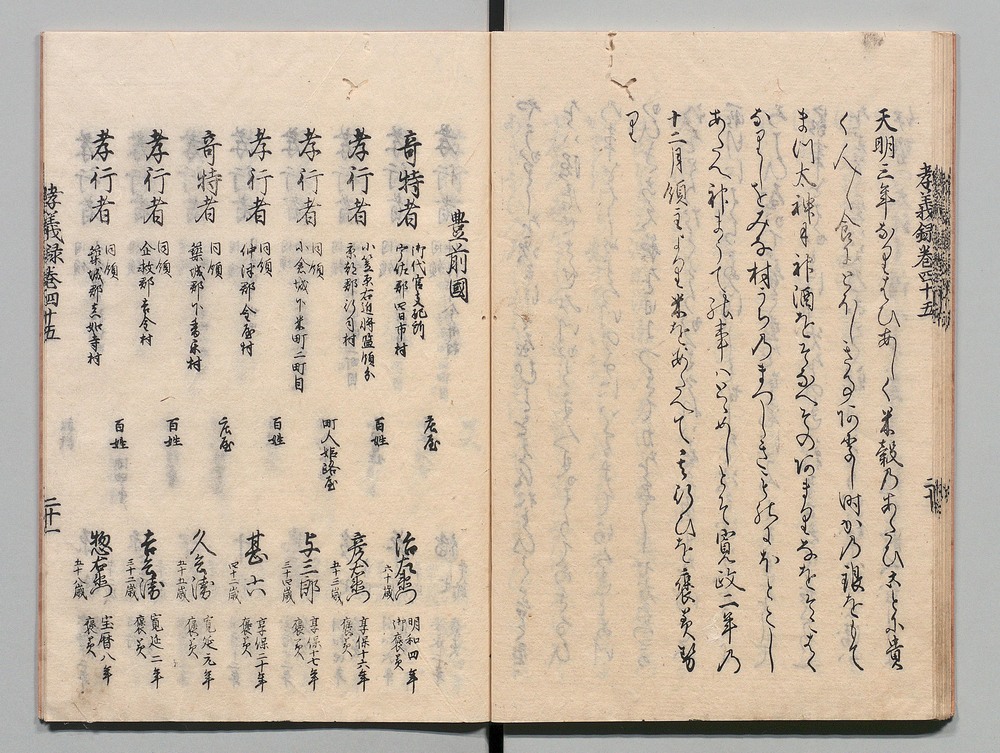 孝義録巻四十五
天明三年なりはひあしく米穀乃あたひことに貴
く人々食にともしき 時かの銀をもて
まつ太神に神酒をそなへその
なりしをみな村うちのまつしき
あたへ神まうて 事はとゝめしとて寛政二年乃
十二月領主より米をあたへて其行ひを褒美
り
豊前國
奇特者 御代官支配所 宇佐郡四日市村 庄屋 治右衛門 六十歳 明和四年 御褒美
孝行者 小笠原右近将監領分 京都郡行司村 百姓 彦右衛門 五十三歳 享保十六年 褒美
孝行者 同領 小倉城下米町二町目 町人姫路屋 与三郎 三十四歳 享保十七年 褒美
孝行者 同領 仲津郡今屋村 百姓 甚六 四十二歳 享保二十年 褒美
奇特者 同領 築城郡下香楽村 庄屋 久兵衛 五十五歳 寛延元年 褒美
孝行者 同領 企救郡吉今村 百姓 吉兵衛 三十二歳 寛延二年 褒美
孝行者 同領 築城郡 如寺村 百姓 惣右衛門 五十八歳 宝暦八年 褒美
孝義録巻四十五
二十一